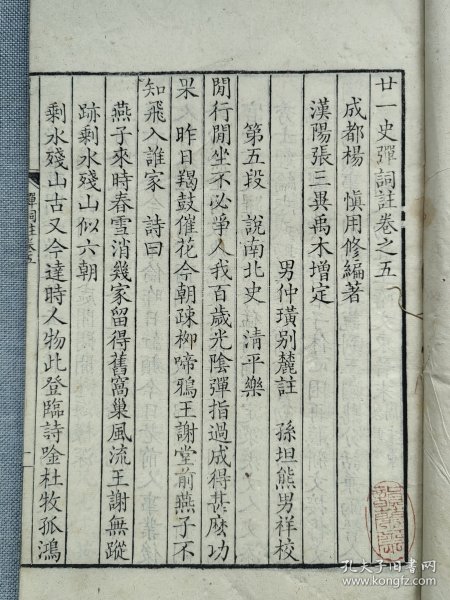 廿一史彈詞註卷之五
成都楊 慎用修編著
漢陽張三異禹木增定
男仲璜別麓註 孫坦熊男祥校
第五段 說南北史 清平樂
閒行閒坐不必爭人我百歲光陰彈指過成得甚麼功
果 昨日羯鼓催花今朝疎柳啼鴉王謝堂前燕子不
知飛入誰家 詩曰
燕子來時春雪消幾家留得舊窩巢風流王謝無蹤
跡剩水殘山似六朝
剩水殘山古又今達時人物此登臨詩唫杜牧孤鴻
彈詞註卷五
孔夫子旧书网
www.kongfz.com